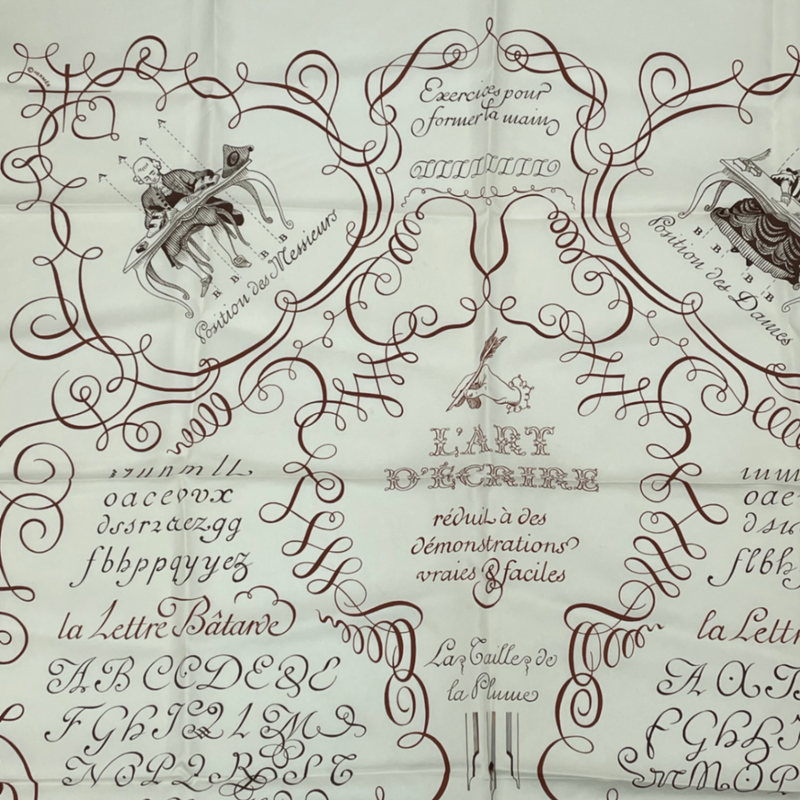 ©HERMÈS
Exercices pour
former la main
A
A
A
B
B
B
B
Position des Messieurs
B
B
B
B
Position des Dames
L'ART
D'ÉCRIRE
réduit à des
démonstrations
vraies & faciles
La Taille de
la Plume
oaceovx
dssr2aezgg
fbhppqyyez
la Lettre Bâtarde
ABCCDEQE
FGhJQLM
NOPQRST
oae
dsu
flbh
la Lettr